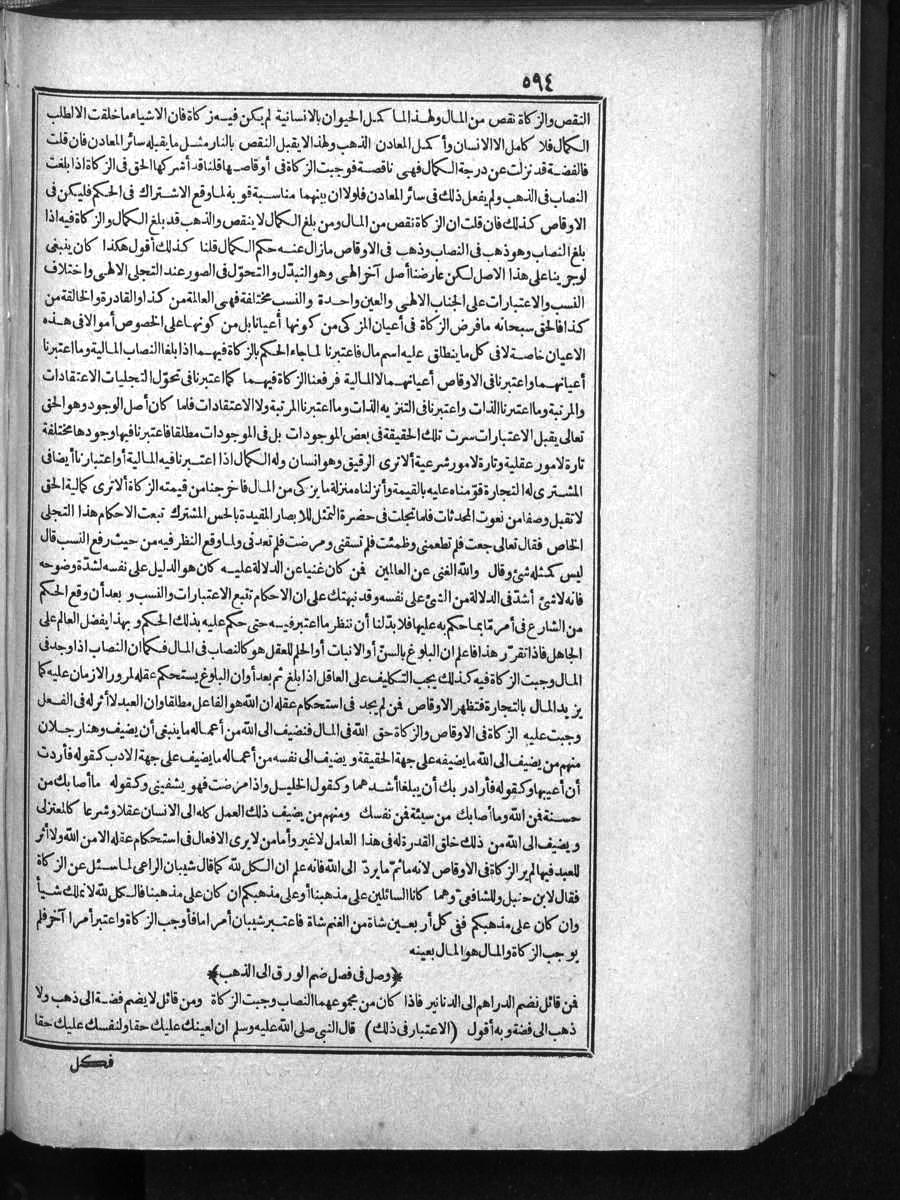 ٥٩٤
النقص والزكاة نقص من المال ولهذا لما كمل الحيوان بالانسانية لم يكن فيه زكاة فان الاشياء ما خلقت الا لطلب
الكمال فلا كامل الا الانسان وأكمل المعادن الذهب ولهذا لا يقبل النقص بالنار مثل ما يقبله سائر المعادن فان قلت
فالفضة قد نزلت عن درجة الكمال فهى ناقصة فوجبت الزكاة فى أوقاصها قلنا قد أشركها الحق فى الزكاة اذا بلغت
النصاب فى الذهب ولم يفعل ذلك فى سائر المعادن فلولا ان بينهما مناسبة قوية لما وقع الاشتراك فى الحكم فليكن فى
الاوقاص كذلك فان قلت ان الزكاة نقص من المال ومن بلغ الكمال لا ينقص والذهب قد بلغ الكمال والزكاة فيه اذا
بلغ النصاب وهو ذهب فى النصاب وذهب فى الاوقاص ما زال عنه حكم الكمال قلنا كذلك أقول هكذا كان ينبغى
لو جرينا على هذا الاصل لكن عارضنا أصل آخر الهى وهو التبدّل والتحوّل فى الصور عند التجلى الالهى واختلاف
النسب والاعتبارات على الجناب الالهى والعين واحدة والنسب مختلفة فهى العالمة من كذا والقادرة والخالقة من
كذا فالحق سبحانه ما فرض الزكاة فى أعيان المزكى من كونها أعيانا بل من كونها على الخصوص أموالا فى هذه
الاعيان خاصة لا فى كل ما ينطلق عليه اسم مال فاعتبرنا لما جاء الحكم بالزكاة فيهما اذا بلغا النصاب المالية وما اعتبرنا
أعيانهما واعتبرنا فى الاوقاص أعيانهما لا المالية فرفعنا الزكاة فيهما كما اعتبرنا فى تحوّل التجليات الاعتقادات
والمرتبة وما اعتبرنا الذات واعتبرنا فى التنزيه الذات وما اعتبرنا المرتبة ولا الاعتقادات فلما كان أصل الوجود وهو الحق
تعالى يقبل الاعتبارات سرت تلك الحقيقة فى بعض الموجودات بل فى الموجودات مطلقا فاعتبرنا فيها وجودها مختلفة
تارة لامور عقلية وتارة لامور شرعية ألا ترى الرقيق وهو انسان وله الكمال اذا اعتبرنا فيه المالية أو اعتبارنا أيضا فى
المشترى له التجارة قوّمناه عليه بالقيمة وأنزلناه منزلة ما يزكى من المال فاخرجنا من قيمته الزكاة ألا ترى كمالية الحق
لا تقبل وصفا من نعوت المحدثات فلما تجلت فى حضرة التمثل للابصار المقيدة بالحس المشترك تبعت الاحكام هذا التجلى
الخاص فقال تعالى جعت فلم تطعمنى وظمئت فلم تسقنى ومرضت فلم تعدنى ولما وقع النظر فيه من حيث رفع النسب قال
ليس كمثله شئ وقال والله الغنى عن العالمين فمن كان غنيا عن الدلالة عليه كان هو الدليل على نفسه لشدّة وضوحه
فانه لا شئ أشدّ فى الدلالة من الشئ على نفسه وقد نبهتك على ان الاحكام تتبع الاعتبارات والنسب وبعد أن وقع الحكم
من الشارع فى أمر مّا بما حكم به عليها فلا بدّ لنا أن ننظر ما اعتبر فيه حتى حكم عليه بذلك الحكم وبهذا يفضل العالم على
الجاهل فاذا تقرّر هذا فاعلم ان البلوغ بالسنّ أو الانبات أو الحلم للعقل هو كالنصاب فى المال فكما ان النصاب اذا وجد فى
المال وجبت الزكاة فيه كذلك يجب التكليف على العاقل اذا بلغ ثم بعد أوان البلوغ يستحكم عقله لمرور الازمان عليه كما
يزيد المال بالتجارة فتظهر الاوقاص فمن لم يجد فى استحكام عقله ان الله هو الفاعل مطلقا وان العبد لا أثر له فى الفعل
وجبت عليه الزكاة فى الاوقاص والزكاة حق الله فى المال فنضيف الى الله من أعماله ما ينبغى أن يضيف وهنا رجلان
منهم من يضيف الى الله ما يضيفه على جهة الحقيقة ويضيف الى نفسه من أعماله ما يضيف على جهة الادب كقوله فأردت
أن أعيبها وكقوله فأراد ربك أن يبلغا أشدهما وكقول الخليل واذا مرضت فهو يشفينى وكقوله ما أصابك من
حسنة فمن الله وما أصابك من سيئة فمن نفسك ومنهم من يضيف ذلك العمل كله الى الانسان عقلا وشرعا كالمعتزلى
ويضيف الى الله من ذلك خلق القدرة له فى هذا العامل لا غير وأما من لا يرى الافعال فى استحكام عقله الا من الله ولا أثر
للعبد فيها لم ير الزكاة فى الاوقاص لانه ما ثمّ ما يردّ الى الله فانه علم ان الكل لله كما قال شيبان الراعى لما سئل عن الزكاة
فقال لابن حنبل وللشافعىّ وهما كانا السائلين على مذهبنا أو على مذهبكم ان كان على مذهبنا فالكل لله لا نملك شيأ
وان كان على مذهبكم ففى كل أربعين شاة من الغنم شاة فاعتبر شيبان أمرا ما فأوجب الزكاة واعتبر أمرا آخر فلم
يوجب الزكاة والمال هو المال بعينه
﴿وصل فى فصل ضم الورق الى الذهب﴾
فمن قائل نضم الدراهم الى الدنانير فاذا كان من مجموعهما النصاب وجبت الزكاة ومن قائل لا يضم فضة الى ذهب ولا
ذهب الى فضة وبه أقول (الاعتبار فى ذلك) قال النبى صلى الله عليه وسلم ان لعينك عليك حقا ولنفسك عليك حقا
فكل